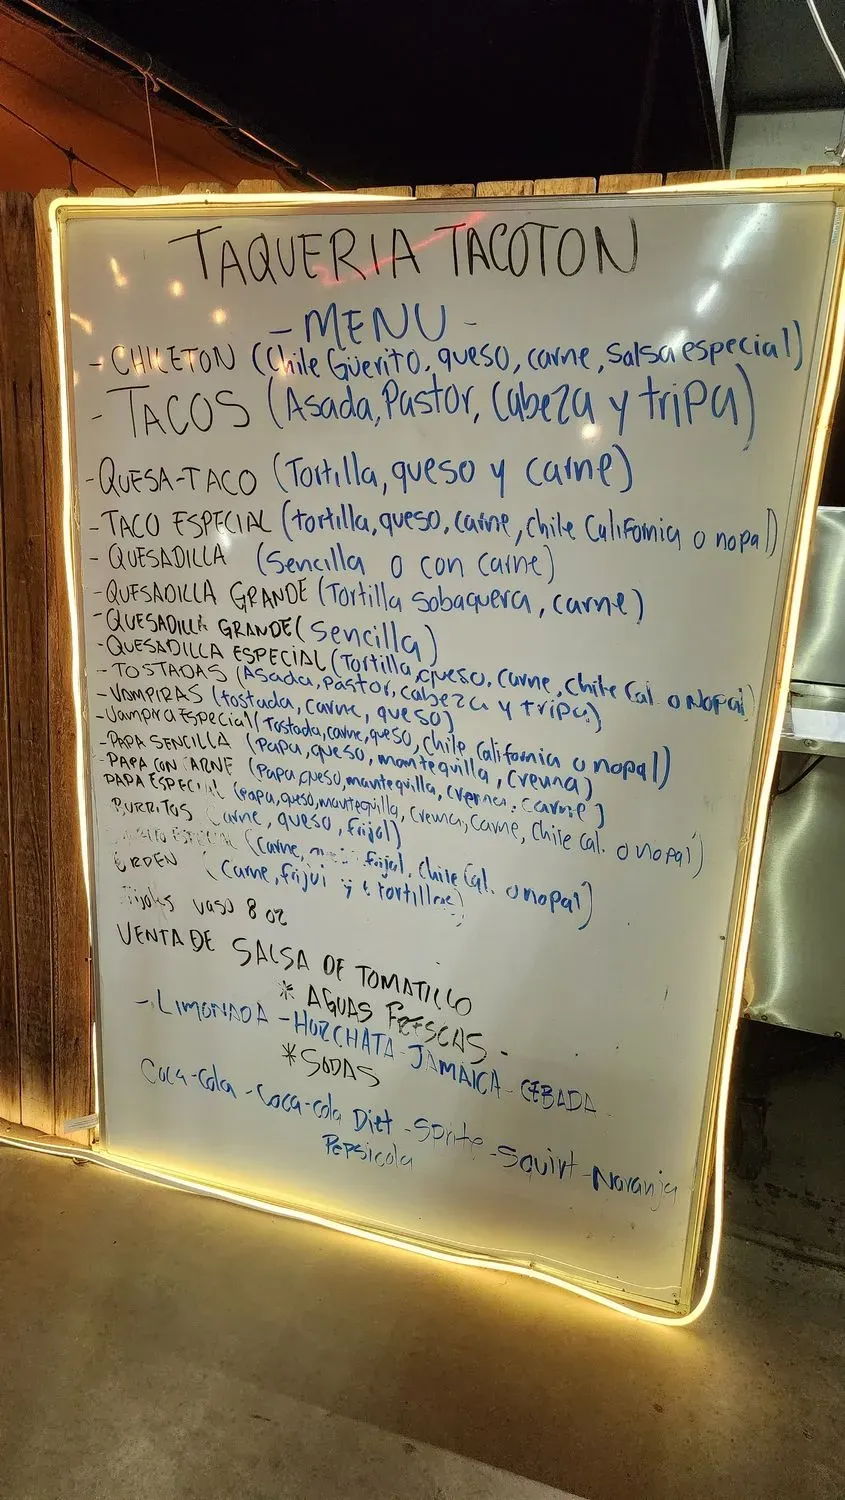 TAQUERIA TACOTON
- MENU -
- CHILETON (Chile Güerito, queso, carne, Salsa especial)
- TACOS (Asada, Pastor, Cabeza y tripa)
- QUESA-TACO (Tortilla, queso y carne)
- TACO ESPECIAL (tortilla, queso, carne, chile California o nopal)
- QUESADILLA (Sencilla o con carne)
- QUESADILLA GRANDE (Tortilla Sobaquera, carne)
- QUESADILLA GRANDE (Sencilla)
- QUESADILLA ESPECIAL (Tortilla, queso, carne, chile Cal. o Nopal)
- TOSTADAS (Asada, Pastor, cabeza y tripa)
- VAMPIRAS (tostada, carne, queso)
- Vampira Especial (Tostada, carne, queso, chile California o nopal)
- PAPA SENCILLA (Papa, queso, mantequilla, crema)
- PAPA CON CARNE (Papa, queso, mantequilla, crema, carne)
PAPA ESPECIAL (Papa, queso, mantequilla, crema, carne, chile Cal. o nopal)
BURRITOS (carne, queso, frijol)
ESPECIAL (carne, frijol, chile Cal. o nopal)
ORDEN (carne, frijol y tortillas)
vaso 8 oz
VENTA DE SALSA DE TOMATILLO
* AGUAS FRESCAS -
- LIMONADA - HORCHATA - JAMAICA - CEBADA
* SODAS
Coca-Cola - Coca-cola Diet - Sprite - Squirt - Naranja
Pepsicola